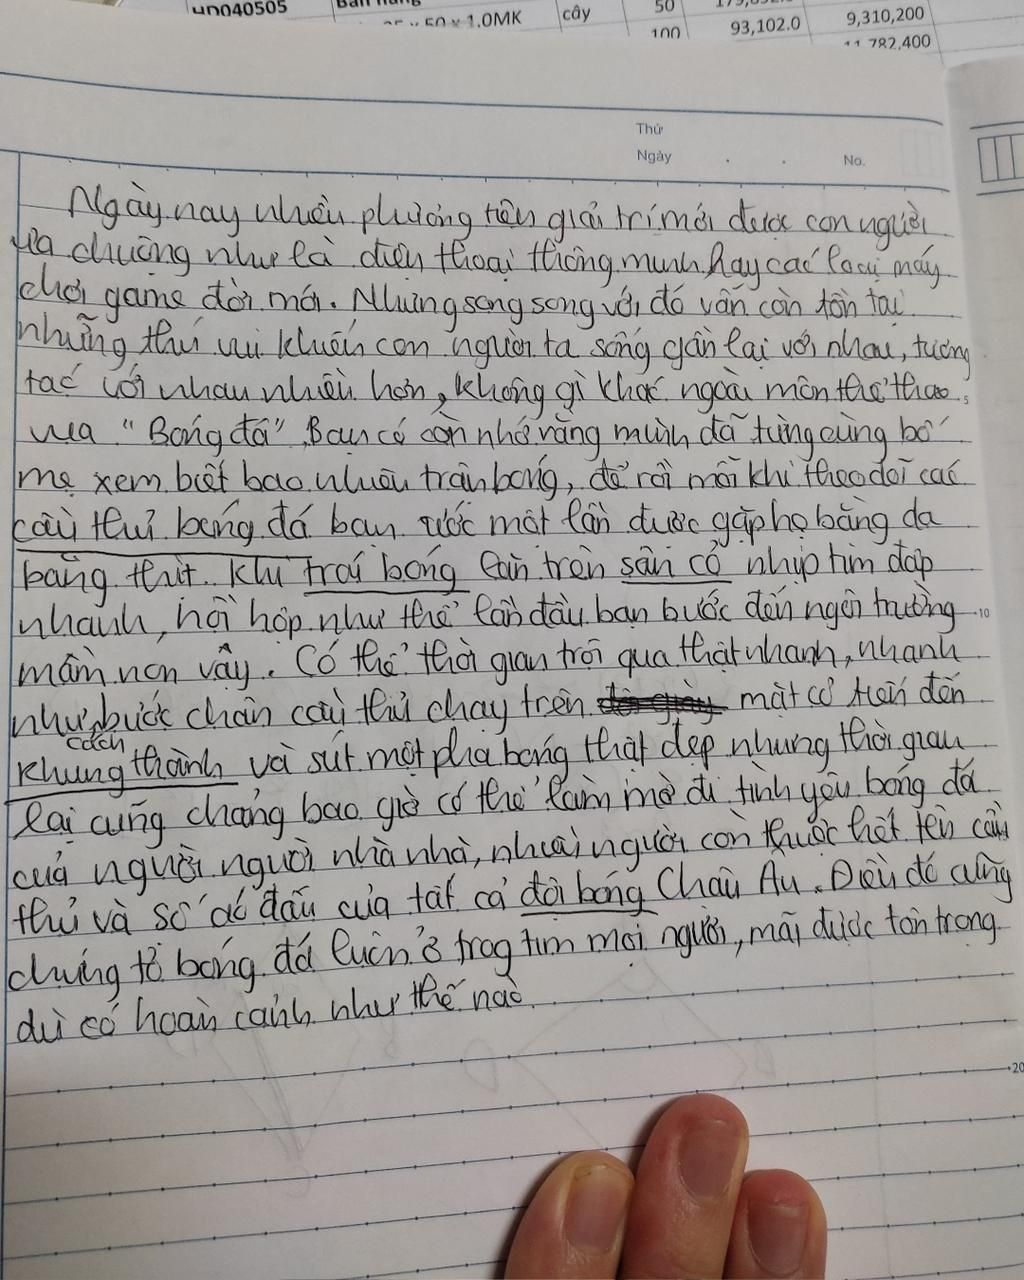 HD040505 Bán hàng
25 x 50 x 1.0MK cây 50
100 93,102.0 9,310,200
11,782,400
Thứ
Ngày . . No.
Ngày nay nhiều phương tiện giải trí mới được con người
ưa chuộng như là điện thoại thông minh hay các loại máy
chơi game đời mới. Nhưng song song với đó vẫn còn tồn tại
những thú vui khiến con người ta sống gần lại với nhau, tương
tác với nhau nhiều hơn, không gì khác ngoài môn thể thao
vua "Bóng đá". Bạn có còn nhớ rằng mình đã từng cùng bố
mẹ xem biết bao nhiêu trận bóng, để rồi mỗi khi theo dõi các
cầu thủ bóng đá bạn ước một lần được gặp họ bằng da
bằng thịt. Khi trái bóng lăn trên sân cỏ nhịp tim đập
nhanh, hồi hộp như thể lần đầu bạn bước đến ngôi trường
10
mầm non vậy. Có thể thời gian trôi qua thật nhanh, nhanh
như bước chân cầu thủ chạy trên mặt cỏ tiến đến
cách
khung thành và sút một pha bóng thật đẹp nhưng thời gian
lại cũng chẳng bao giờ có thể làm mờ đi tình yêu bóng đá
của người người nhà nhà, nhoài người còn thuộc hết tên cầu
thủ và số áo đấu của tất cả đội bóng Châu Âu. Điều đó cũng
chứng tỏ bóng đá luôn ở trog tim mọi người, mãi được tôn trọng
dù có hoàn cảnh như thế nào.
20